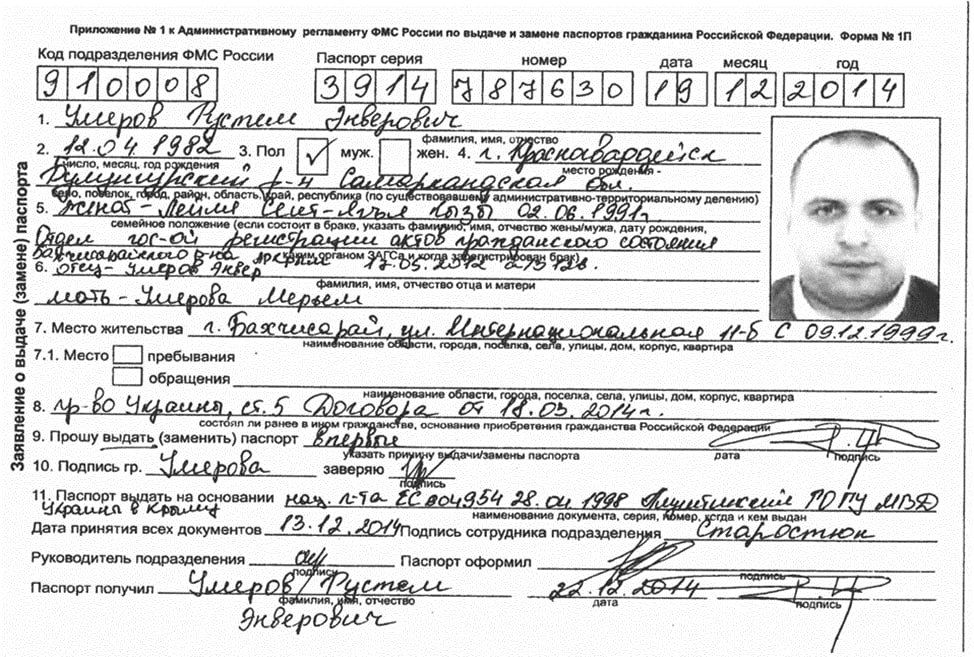 Приложение № 1 к Административному регламенту ФМС России по выдаче и замене паспортов гражданина Российской Федерации. Форма № 1П
Код подразделения ФМС России Паспорт серия номер дата месяц год
910008 3914 787630 19 12 2014
Заявление о выдаче (замене) паспорта
1. Умеров Рустем Энверович
фамилия, имя, отчество
2. 12.04 1982 3. Пол ✓ муж. жен. 4. г. Красногвардейск
число, месяц, год рождения место рождения -
Булунгурский р-н Самаркандская обл.
село, поселок, город, район, область, край, республика (по существовавшему административно-территориальному делению)
5. жена - Лейля Сеит-Ягъя кызы 02.06.1991г.
семейное положение (если состоит в браке, указать фамилию, имя, отчество жены/мужа, дату рождения,
Отдел гос-ой регистрации актов гражданского состояния
каким органом ЗАГСа и когда зарегистрирован брак)
Бахчисарайского р-на 17.03.2012
6. отец - Умеров Энвер
фамилия, имя, отчество отца и матери
мать - Умерова Мерьем
7. Место жительства г. Бахчисарай, ул. Интернациональная 11-б с 09.12.1999г.
наименование области, города, поселка, села, улицы, дом, корпус, квартира
7.1. Место пребывания
обращения
наименование области, города, поселка, села, улицы, дом, корпус, квартира
8. гр-во Украины, ст. 5 Договора от 18.03.2014г.
состоял ли ранее в ином гражданстве, основание приобретения гражданства Российской Федерации
9. Прошу выдать (заменить) паспорт впервые
указать причину выдачи/замены паспорта дата подпись
10. Подпись гр. Умерова заверяю
подпись
11. Паспорт выдать на основании нац. п-та ЕС 204954 28.04 1998 РОГУ МВД
Украины в Крыму
наименование документа, серия, номер, когда и кем выдан
Дата принятия всех документов 13.12.2014 Подпись сотрудника подразделения Старостюк
Руководитель подразделения Паспорт оформил
подпись подпись
Паспорт получил Умеров Рустем 22.12.2014
фамилия, имя, отчество дата подпись
Энверович